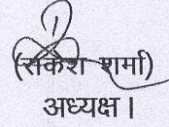 (राकेश शर्मा)
अध्यक्ष।